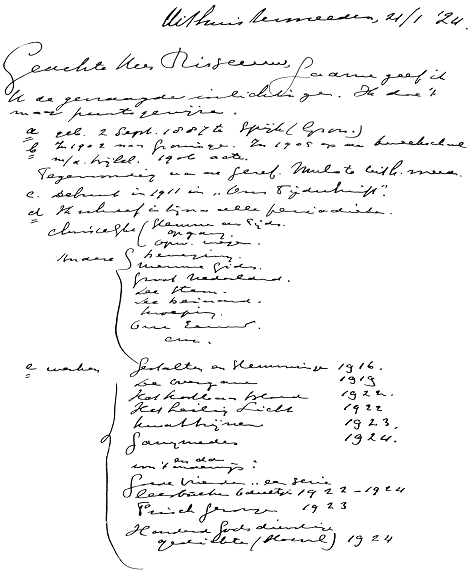 Uithuizermeeden, 21/1 '24.
Geachte Heer Risseeuw, Gaarne geef ik
U de gevraagde inlichtingen. Ik doe 't
maar puntsgewijze.
a geb. 2 Sept. 1887 te Spijk (Gron.)
b In 1902 naar Groningen. In 1905 op de kweekschool
m/d. bijbel. 1906 acte.
Tegenwoordig aan de Geref. Mulo te Uith. meeden.
c. Debuut in 1911 in „Ons Tijdschrift".
d Ik schreef in bijna alle periodieken.
christelijke ( Stemmen des Tijds.
Opgang.
Opw. Wegen.
Andere { Beweging.
Nieuwe Gids.
Groot Nederland.
De Stem.
De
Roeping.
Onze Eeuw.
enz.
e werken Gestalten en Stemmingen 1916.
De Overgave 1919
Het Kostbaar Bloed 1922.
Het Heilig Licht 1922
Kwatrijnen 1923.
Ganymedes 1924.
en dan
Goede Vrienden, een serie
leesboeken 1922-1924
Frisch Genoeg 1923
Honderd Godsdienstige
gedichten 1924